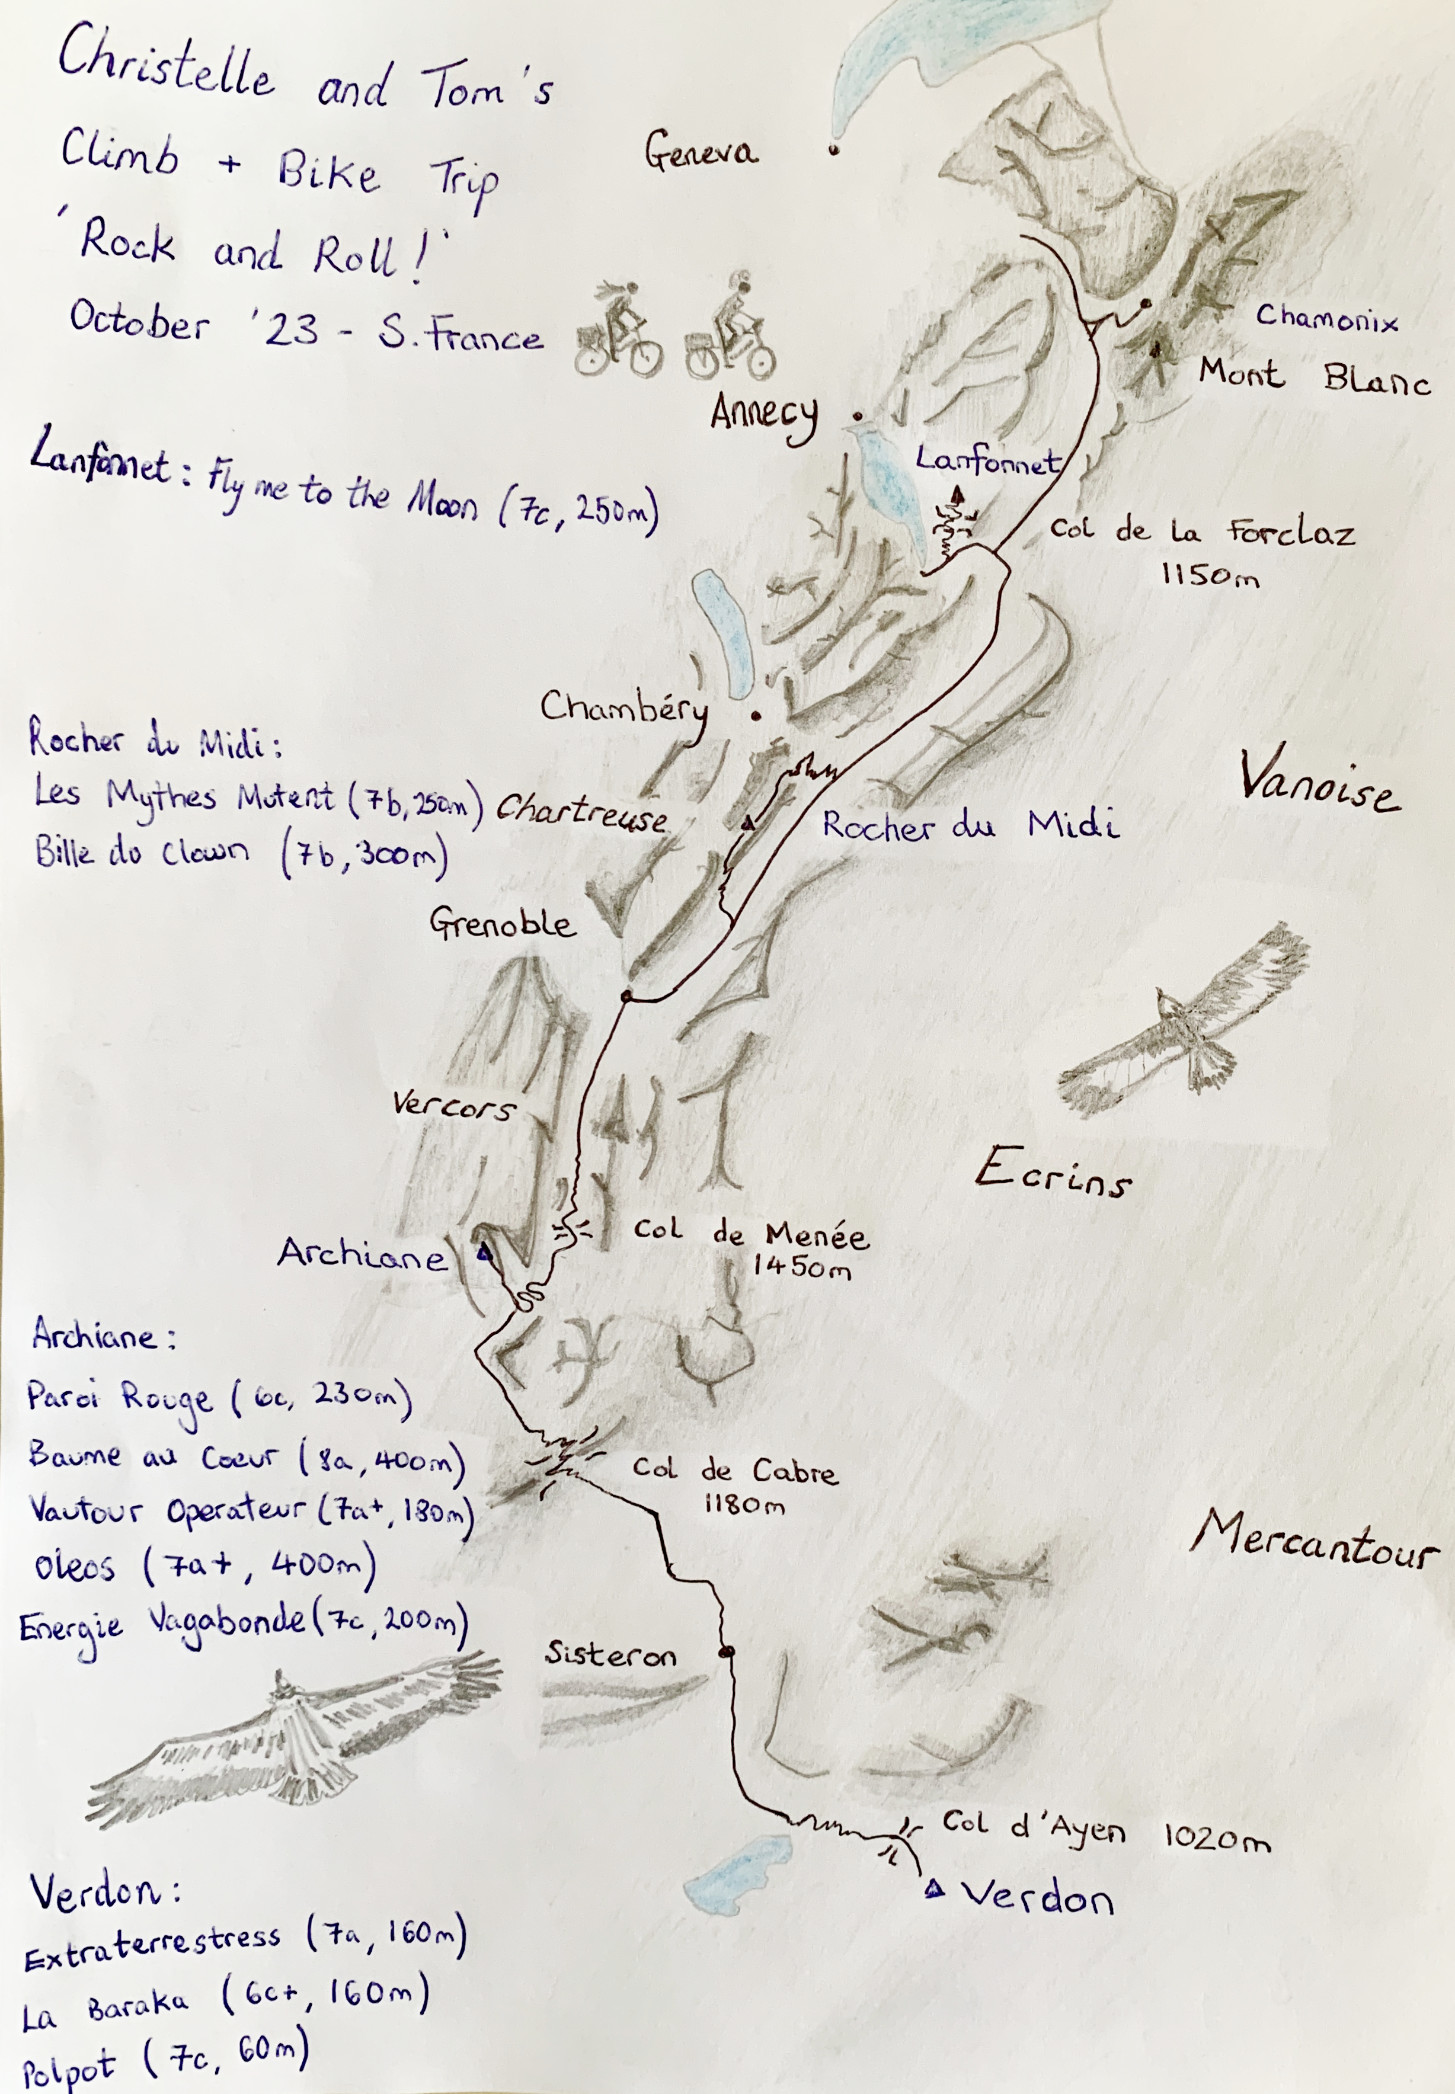 Christelle and Tom's
Climb + Bike Trip
'Rock and Roll!'
October '23 - S. France
Geneva
Chamonix
Mont Blanc
Annecy
Lanfonnet
Lanfonnet: Fly me to the Moon (7c, 250m)
Col de la Forclaz
1150m
Chambéry
Rocher du Midi:
Les Mythes Mutent (7b, 250m)
Bille du Clown (7b, 300m)
Chartreuse
Rocher du Midi
Vanoise
Grenoble
Vercors
Ecrins
Archiane
Col de Menée
1450m
Archiane:
Paroi Rouge (6c, 230m)
Baume au Coeur (8a, 400m)
Vautour Operateur (7a+, 180m)
Oleos (7a+, 400m)
Energie Vagabonde (7c, 200m)
Col de Cabre
1180m
Mercantour
Sisteron
Col d'Ayen 1020m
Verdon
Verdon:
Extraterrestress (7a, 160m)
La Baraka (6c+, 160m)
Polpot (7c, 60m)